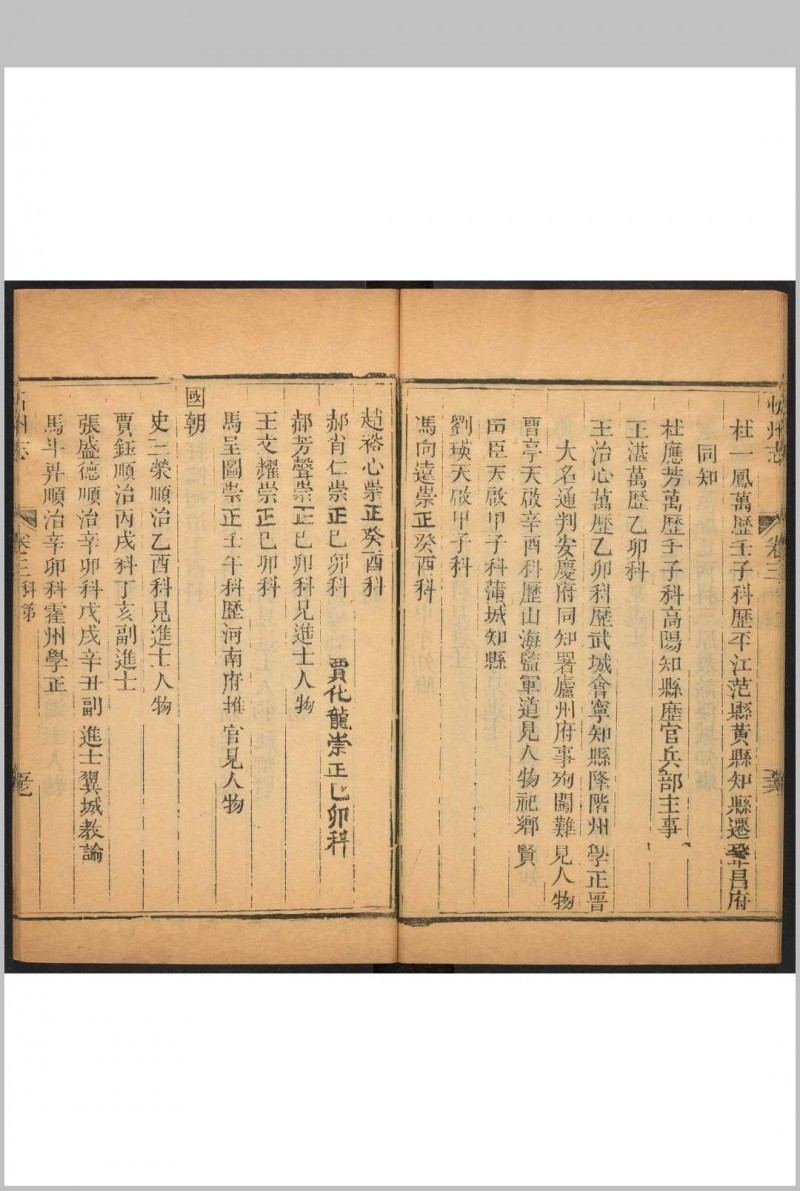 忻州志 卷三
杜一鳳萬歷壬子科歷平江范縣黃縣知縣遷鞏昌府
同知
杜應芳萬歷壬子科高陽知縣歷官兵部主事
王湛萬歷乙卯科
王治心萬歷乙卯科歷武城會寧知縣降階州學正晉
大名通判安慶府同知署廬州府事殉闖難見人物
曹亭天啟辛酉科歷山海監軍道見人物祀鄉賢
臣天啟甲子科蒲城知縣
劉瑛天啟甲子科
馮向遠崇正癸酉科
趙裕心崇正癸酉科
郝肖仁崇正己卯科 賈化龍崇正己卯科
郝芳聲崇正己卯科見進士人物
王文耀崇正己卯科
馬呈圖崇正壬午科歷河南府推官見人物
國朝
史三榮順治乙酉科見進士人物
賈鈺順治丙戌科丁亥副進士
張盛德順治辛卯科戊戌辛丑副進士翼城教諭
馬斗昇順治辛卯科霍州學正
州志 卷三 科第